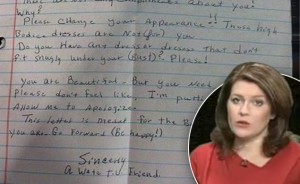 Why?
Please Change your Appearance!! Those high
Bodice dresses are Not (for) you
Do you Have Any dressier dresses that don't
fit snugly under your (Bust)? Please!
you are Beautiful - But you Need
Please don't Feel like I'm
Allow me to Apologize
This letter is meant for the
you are. Go Forward (Be happy!)
Sincerly
A T.V. Friend